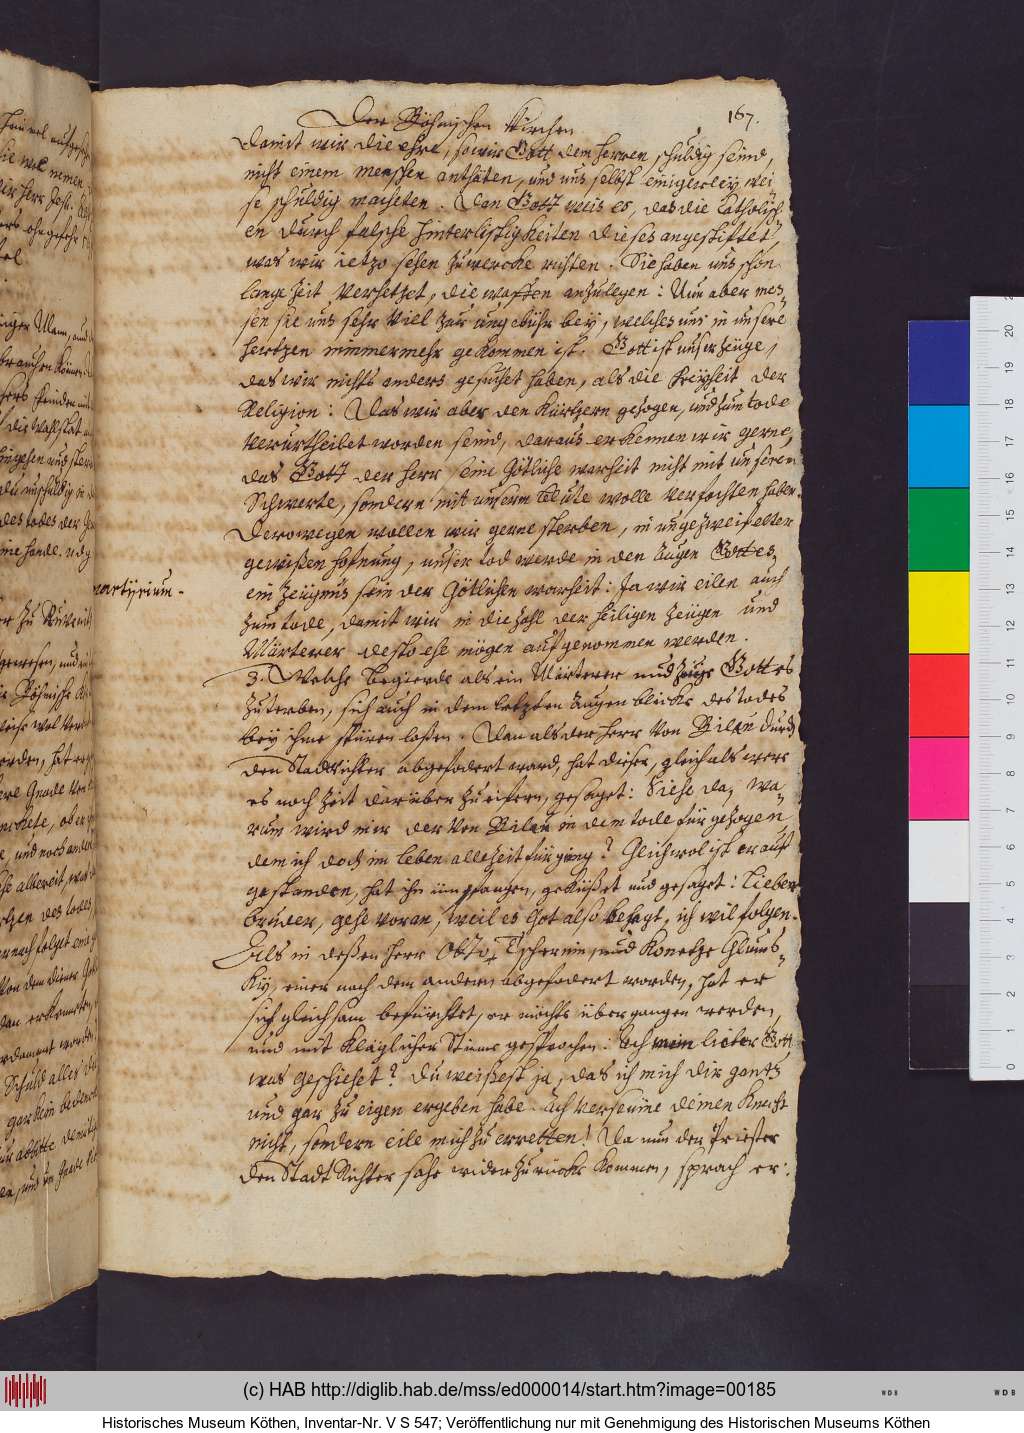 Der Böhmischen Kirchen
167.
damit wir die ehre, so wir Gott dem Herren schuldig seind,
nicht einem menschen anthäten, und uns selbst einigerley wei-
se schuldig macheten. Dan Gott weis es, das die Catholisch-
en durch falsche hinterlistigkeiten dieses angestiftet,
was wir ietzo sehen zu wercke richten. Sie haben uns schon
lange zeit versetzet, die waffen anzulegen: Nun aber mes-
sen sie uns sehr viel zur ungebühr bey, welches uns in unsere
hertzen nimmermehr gekommen ist. Gott ist unser zeuge,
das wir nichts anders gesuchet haben, als die freyheit der
Religion: Das wir aber den kürtzern gezogen, und zum tode
verurtheilet worden seind, daraus erkennen wir gerne,
das Gott der Herr seine Götliche warheit nicht mit unseren
Schwerte, sondern mit unserm blute wolle verfochten haben.
Derowegen wollen wir gerne sterben, in ungezweifelter
gewißen hofnung, unser tod werde in den augen Gottes,
ein zeügnus sein der Götlichen warheit: Ja wir eilen auch
zum tode, damit wir in die zahl der heiligen zeügen und
Märterer desto ehe mögen aufgenommen werden.
martyrium.
3. Welche begierde als ein Märterer und zeuge Gottes
zusterben, sich auch in dem letzten augenblicke des todes
bey ihme spüren laßen. Dan als der Herr von Bilan durch
den Stadtrichter abgefodert ward, hat dieser, gleich als were
es noch zeit darüber zu eifern, gesaget: Siehe da, wa-
rum wird mir der von Bilan in dem tode fürgezogen
dem ich doch im leben allezeit fürging? Gleichwol ist er auf
gestanden, hat ihn umfangen, geküßet und gesaget: Lieber
bruder, gehe voran, weil es Got also behagt, ich wil folgen.
Als in deßen Herr Otto, Tschernin, und Konetze Chlums-
ky, einer nach dem andern abgefodert worden, hat er
sich gleichsam befürchtet, er möchte übergangen werden,
und mit kläglicher Stimme gesprochen: Ach mein lieber Gott
was geschiehet? du weißest ja, das ich mich dir gantz
und gar zu eigen ergeben habe. ach verseume deinen knecht
nicht, sondern eile mich zu erretten! Da nun der Priester
den Stadt Richter sahe wider zurücke kommen, sprach er:
(c) HAB http://diglib.hab.de/mss/ed000014/start.htm?image=00185
Historisches Museum Köthen, Inventar-Nr. V S 547; Veröffentlichung nur mit Genehmigung des Historischen Museums Köthen